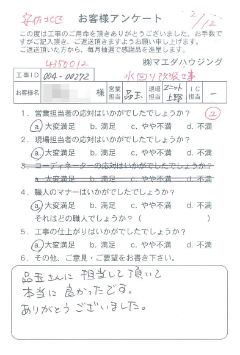 お客様アンケート
2/12
この度は工事のご用命を頂きありがとうございました。お手数で
すがご記入頂き、ご返送頂きますようお願い申し上げます。
ご返送頂いた方から、毎月抽選で感謝品を進呈します。
4350012 ㈱マエダハウジング
工事ID 004-00272 水回り改装工事
お客様名 様 営業担当 品玉 現場担当 IC担当 ー
1. 営業担当者の応対はいかがでしたでしょうか? ②
ⓐ大変満足 b. 満足 c. やや不満 d. 不満
2. 現場担当者の応対はいかがでしたでしょうか?
ⓐ大変満足 b. 満足 c. やや不満 d. 不満
3. コーディネーターの応対はいかがでしたでしょうか?
a. 大変満足 b. 満足 c. やや不満 d. 不満
4. 職人のマナーはいかがでしたでしょうか?
ⓐ大変満足 b. 満足 c. やや不満 d. 不満
それはどの職人でしょうか?( )
5. 工事の仕上がりはいかがでしたでしょうか?
ⓐ大変満足 b. 満足 c. やや不満 d. 不満
6. その他、ご意見・ご要望をお書き下さい。
品玉さんに 担当して頂いて
本当に良かったです。
ありがとうございました。